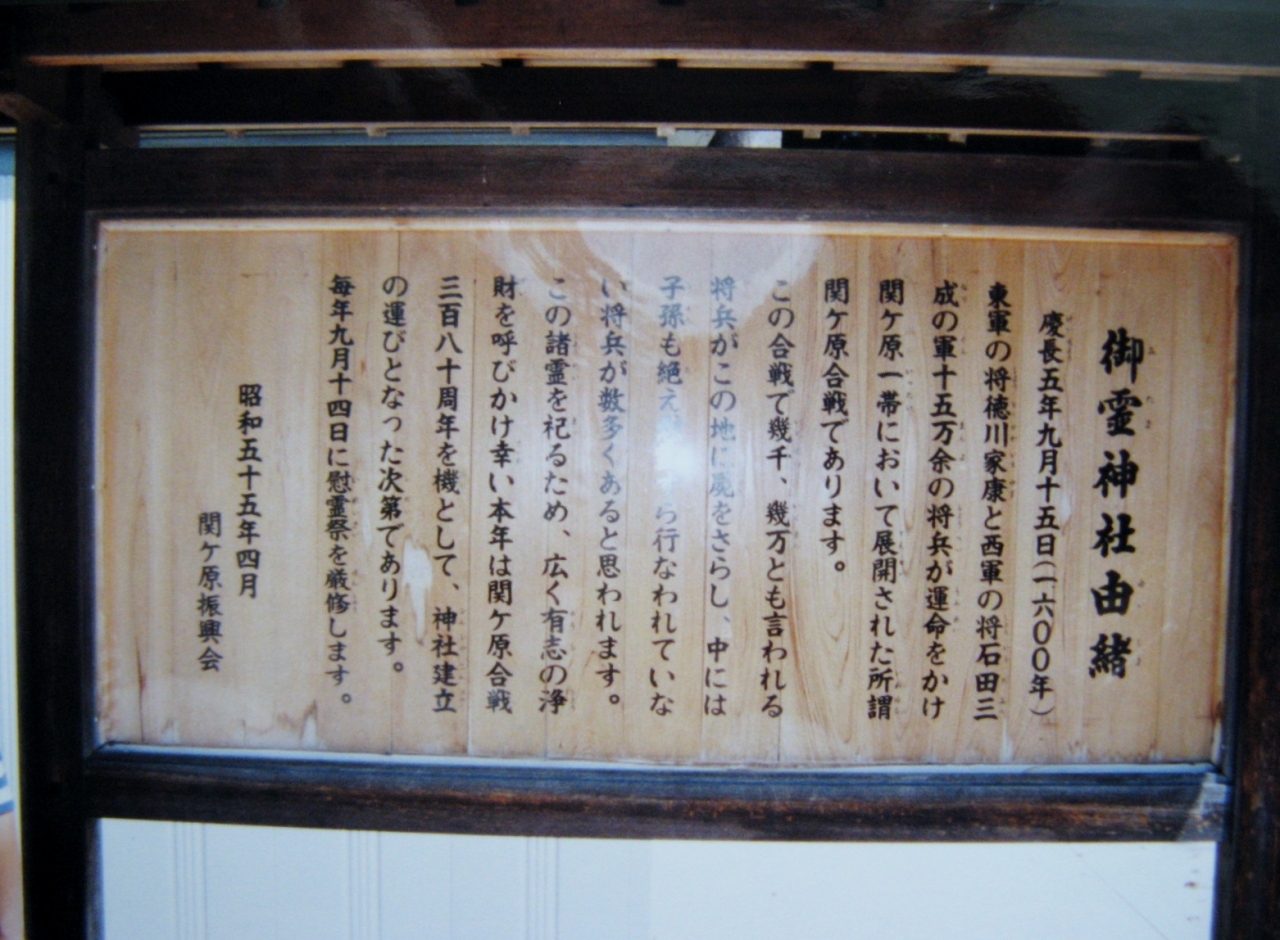 御霊神社由緒
慶長五年九月十五日(一六〇〇年)
東軍の将徳川家康と西軍の将石田三
成の軍十五万余の将兵が運命をかけ
関ケ原一帯において展開された所謂
関ケ原合戦であります。
この合戦で幾千、幾万とも言われる
将兵がこの地に屍をさらし、中には
子孫も絶え ら行なわれていな
い将兵が数多くあると思われます。
この諸霊を祀るため、広く有志の浄
財を呼びかけ幸い本年は関ケ原合戦
三百八十周年を機として、神社建立
の運びとなった次第であります。
毎年九月十四日に慰霊祭を厳修します。
昭和五十五年四月
関ケ原振興会